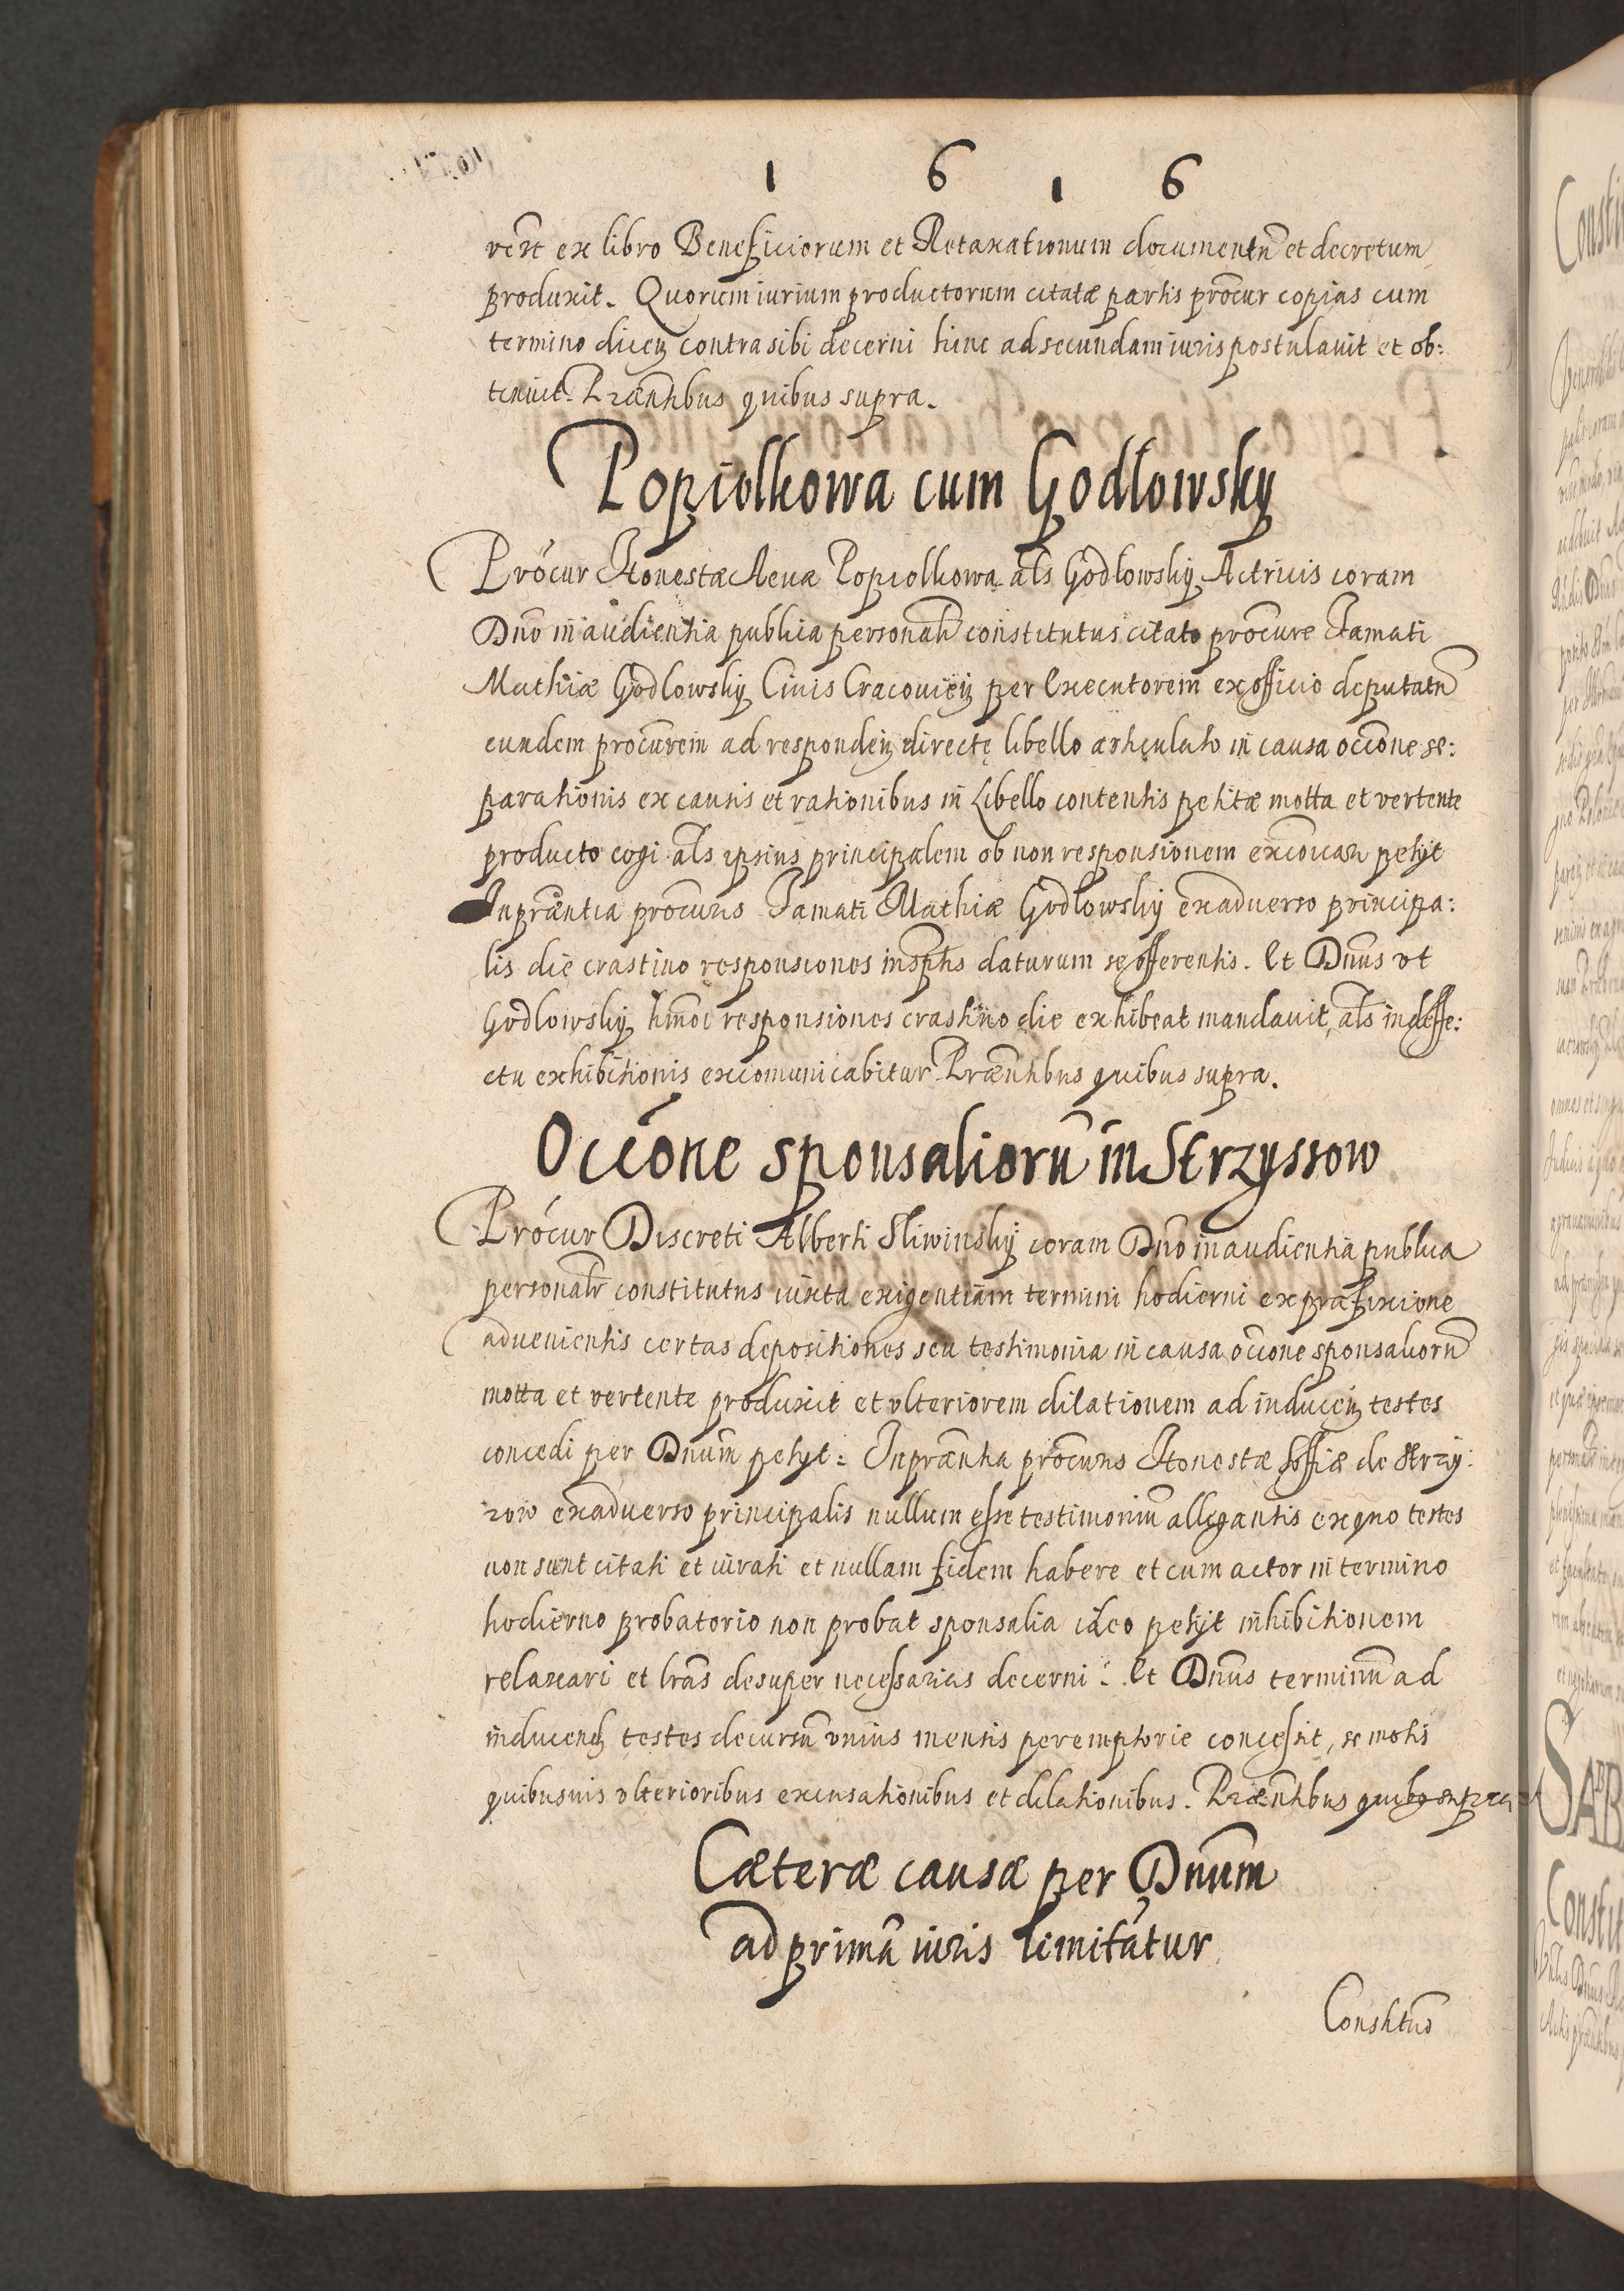 1 6 1 6
ver̃t ex libro Beneficiorum et Retaxationum documentũ et decretum
produxit. Quorum iurium productorum citatæ partis prõcur copias cum
termino dicen contra sibi decerni hinc ad secundam iuris postulauit et ob:
tinuit. Præntibus quibus supra.
Popiolkowa cum Godlowsky
Prõcur Honestæ Popiolkowa als Godlowsky Actricis coram
Dno in audientia publica personalr constitutus citato prõcure Famati
Mathiæ Godlowsky Ciuis Cracouien per Executorem ex officio deputatũ
eundem procurem ad responden directe libello articulato in causa occõne se:
parationis ex causis et rationibus in Libello contentis petitæ motta et vertente
producto cogi als ipsius principalem ob non responsionem excõicari petyt
In præntia procuris Famati Mathiæ Godlowsky ex aduerso principa:
lis die crastino responsiones in sptis daturum se offerentis. Et Dnus vt
Godlowsky hmõi responsiones crastino die exhibeat mandauit, als in deffe:
ctu exhibitionis excomunicabitur Præntibus quibus supra.
Occõne sponsaliorũ in Strzyssow
Prõcur Discreti Alberti Sliwinsky coram Dno in audientia publica
personalr constitutus iuxta exigentiam termini hodierni ex præfixione
aduenientis certas depositiones seu testimonia in causa occõne sponsaliorũ
motta et vertente produxit et vlteriorem dilationem ad inducen testes
concedi per Dnum petyt: In præntia prõcuris Honestæ Soffiæ de Strzy:
zow ex aduerso principalis nullum esse testimoniũ allegantis ex quo testes
non sunt citati et iurati et nullam fidem habere et cum actor in termino
hodierno probatorio non probat sponsalia ideo petyt inhibitionem
relaxari et lras desuper necessarias decerni. Et Dnus terminũ ad
inducend testes decursũ vnius mensis peremptorie concessit, semotis
quibusuis vlterioribus excusationibus et dilationibus. Præntibus quibus supra
Cæteræ causæ per Dnum
ad primã iuris limitãtur
Constituõ